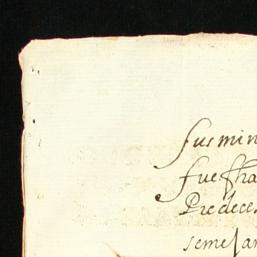 sus min
fue sha
Predece
semejan